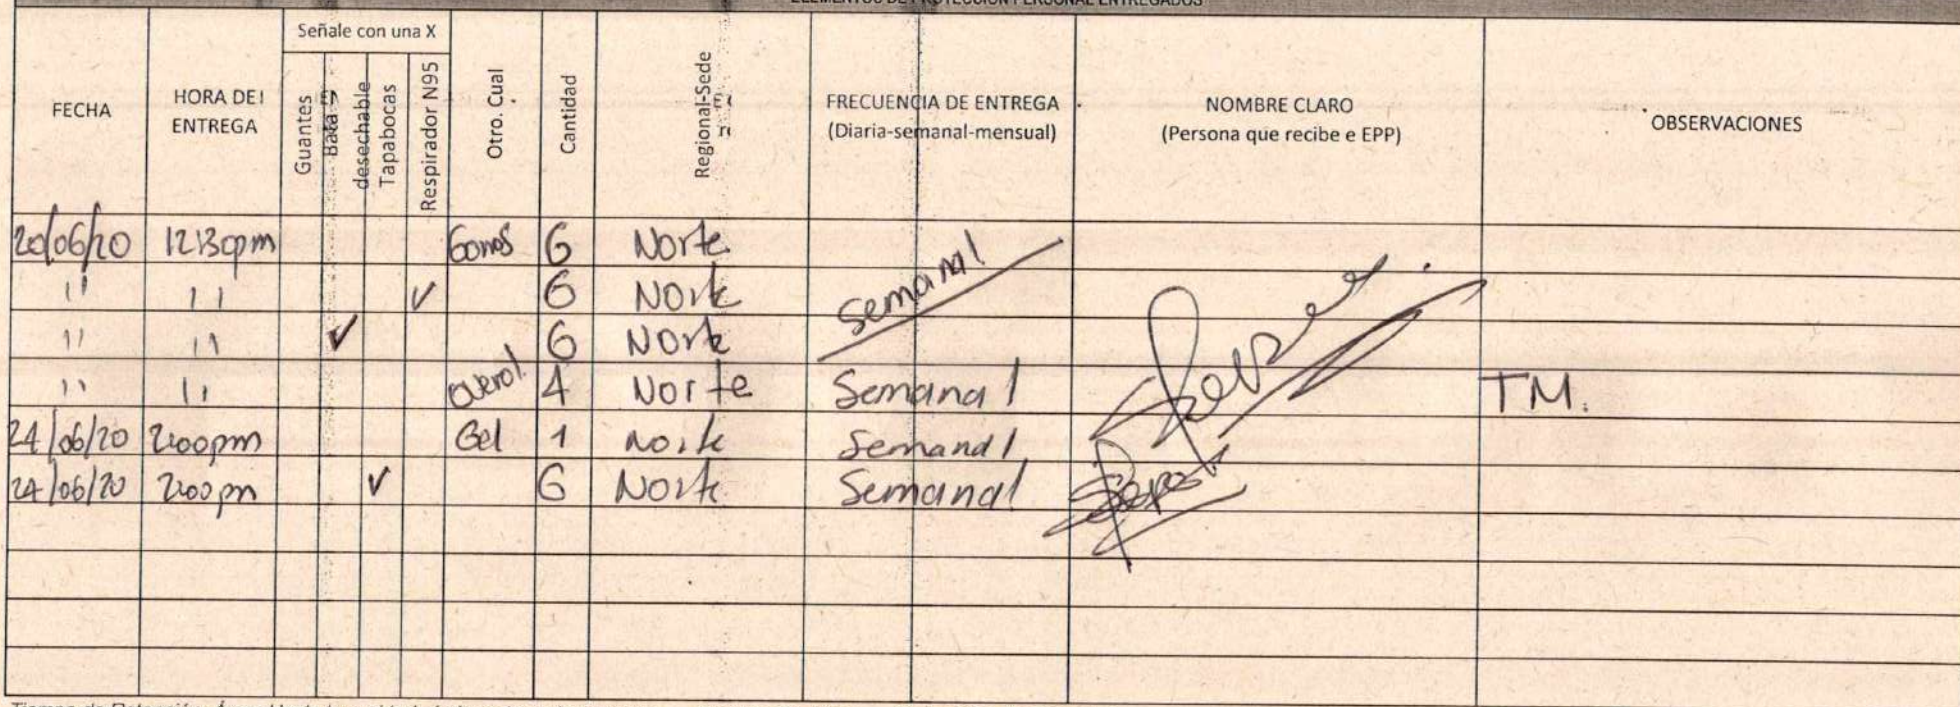 ELEMENTOS DE PROTECCIÓN PERSONAL ENTREGADOS
FECHA
HORA DE ENTREGA
Señale con una X
Guantes
Bata desechable
Tapabocas
Respirador N95
Otro. Cual
Cantidad
Regional-Sede
FRECUENCIA DE ENTREGA
(Diaria-semanal-mensual)
NOMBRE CLARO
(Persona que recibe e EPP)
OBSERVACIONES
20/06/20 12:30pm 6 Norte
" " ✓ 6 Norte semanal
" " ✓ 6 Norte
" " overol. 4 Norte Semanal TM.
24/06/20 2:00pm Gel 1 Norte Semanal
24/06/20 2:00pm ✓ 6 Norte Semanal